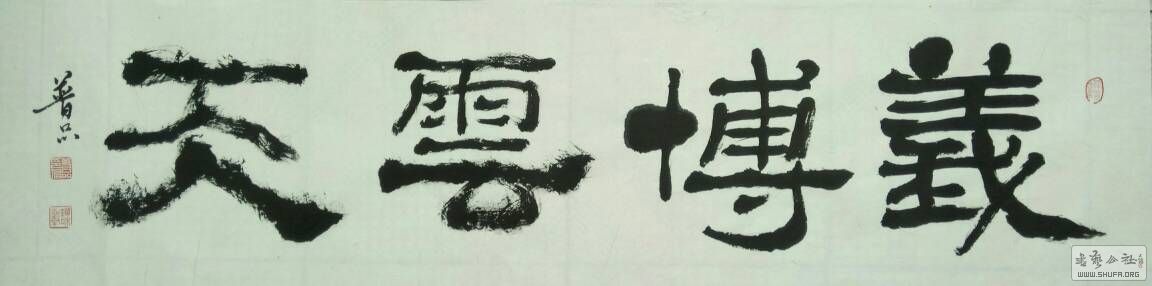 義博雲天
普品
書藝公社
WWW.SHUFA.ORG